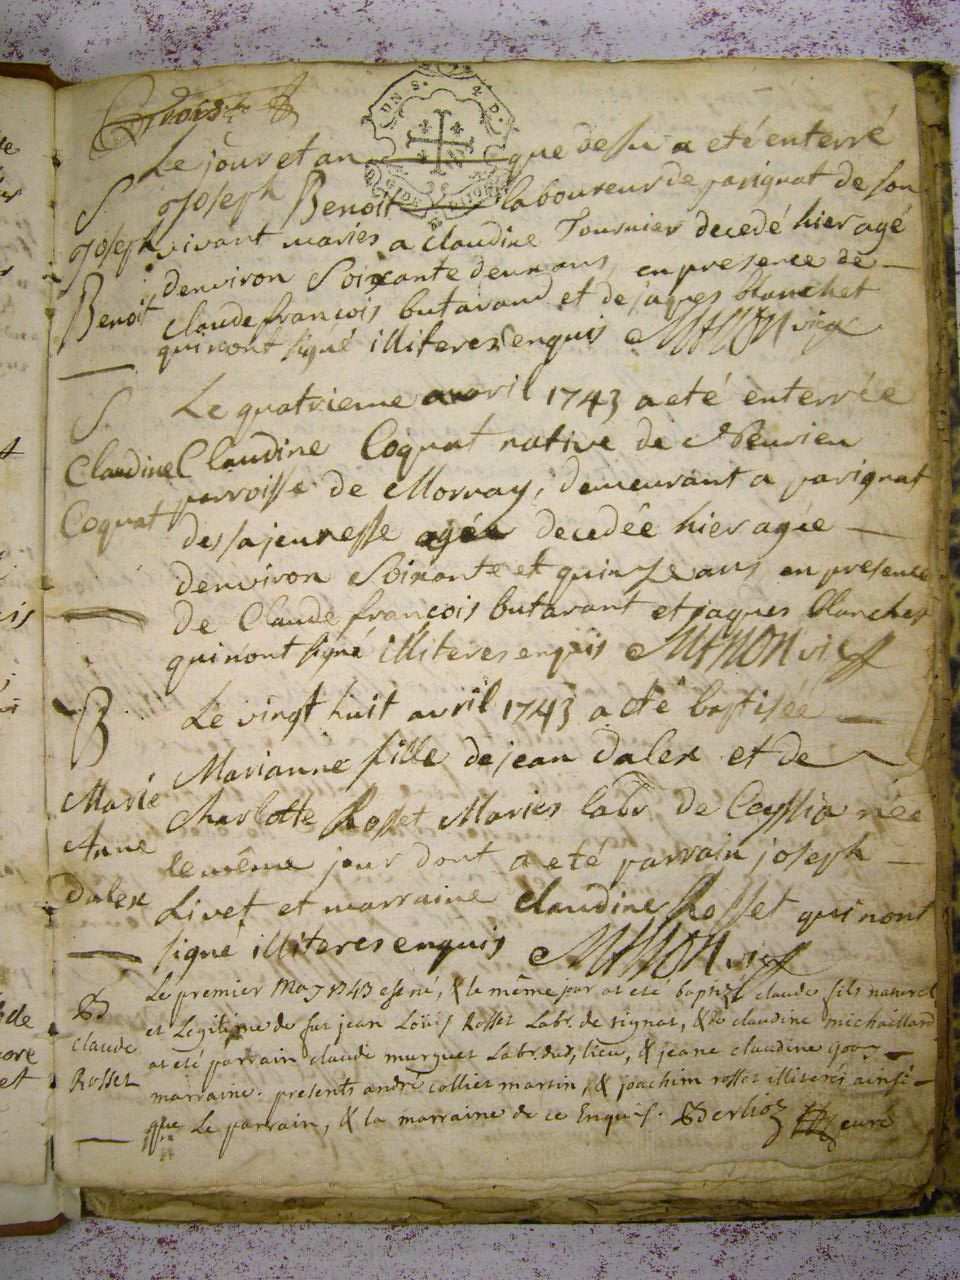 trois
UN S. 4 D.
Le jour et an que dessu a eté enterré
S Joseph Benoit laboureur de parignat de son
Joseph vivant maries a claudine Tournier decedé hier agé
denviron Soixante deux ans, en presence de
Benoit claude françois butavand et de jaques blanchet
qui nont signé illiteres enquis
Le quatrieme avril 1743 a eté enterrée
S
Claudine Claudine Coquat native de
Coquat parroisse de Mornay, demeurant a parignat
des sa jeunesse agée decedée hier agée
denviron Soixante et quinze ans en presence
de Claude françois butavant et jaques blanchet
qui nont signé illiteres enquis
B Le vingt huit avril 1743 a eté baptisée
Marianne fille de jean dalex et de
Marie Charlotte Rosset Maries labr de Ceyssia née
Anne le même jour dont a eté parrain joseph
dalex Livet et marraine claudine Rosset qui nont
signé illiteres enquis
Le premier May 1743 est né, & le même jour at eté baptizé claude fils naturel
B et Legitime de fut jean Loüis Rosset Labr. de signat, & de claudine michaillard
claude at eté parrain claude murguet Labr. dud. lieu, & jeane claudine
Rosset marraine. presents andré collier martin, & joachim rosset illiterés ainsi
que Le parrain, & la marraine de ce Enquis. Berlioz curé